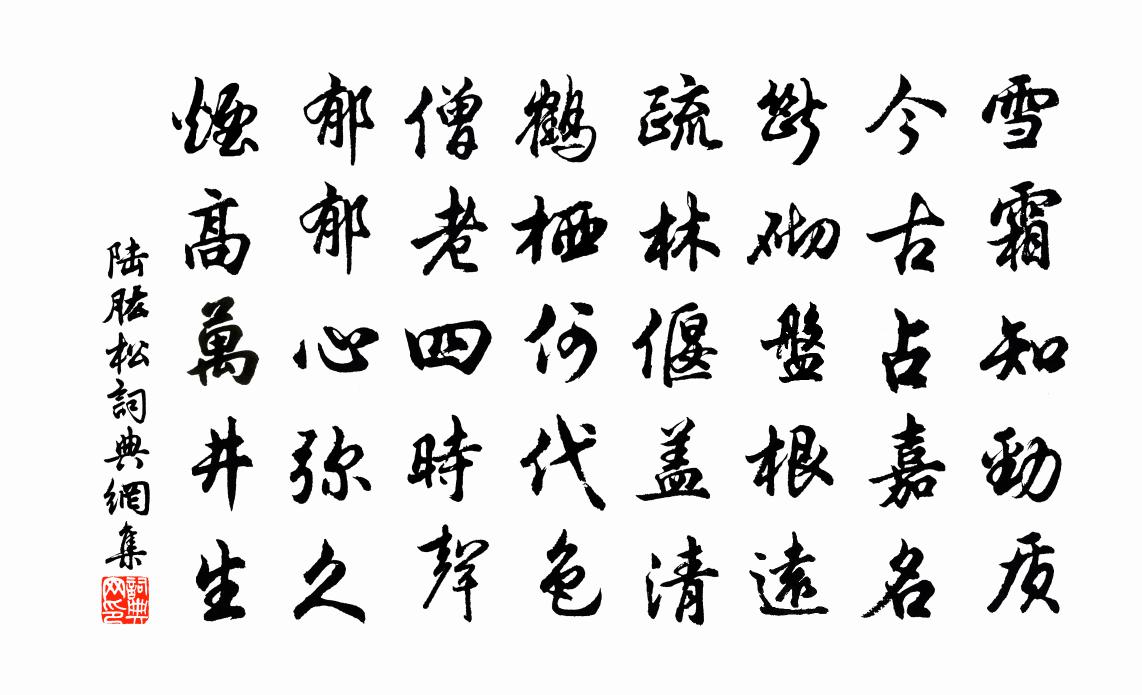 雪霜知勁质
今古占嘉名
斷砌盤根遠
疏林偃盖清
鶴栖何代色
僧老四時聲
郁郁心弥久
煙高萬井生
陸肱松詞典網集
詞典網印